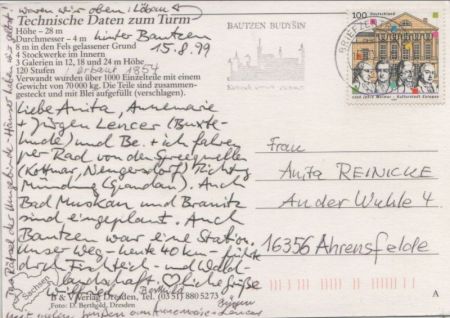 waren wir oben! Löbau
Technische Daten zum Turm
Höhe – 28 m
Durchmesser – 4 m hinter Bautzen
8 m in den Fels gelassener Grund 15.8.99
4 Stockwerke im Innern
3 Galerien in 12, 18 und 24 m Höhe
120 Stufen erbaut 1854
Verwandt wurden über 1000 Einzelteile mit einem
Gewicht von 70000 kg. Die Teile sind zusammen-
gesteckt und mit Blei aufgefüllt (verschlagen).
Liebe Anita, Annemarie
Jürgen Lencer (Buxte-
hude) und Be. + ich fahren
per Rad von den Spreequellen
(Kottmar, Neugersdorf) Richtg
Mündung (Spandau). Auch
Bad Muskau und Branitz
sind eingeplant. Auch
Bautzen war eine Station.
Unser Weg – heute 40 km – führte
durch Fischteich- und Wald-
landschaft. Liebe Grüße
Wilfried Berthild
B & V Verlag Dresden, Tel. (0351) 8805273
Foto: D. Berthold, Dresden Jürgen
Annemarie Lencer
Das Rätsel der Umgebinde-Häuser haben wir gelöst
Sachsen
BAUTZEN BUDYŠIN
BRIEFZE
100 Deutschland
1100 Jahre Weimar - Kulturstadt Europas
Frau
Anita REINICKE
An der Wuhle 4
16356 Ahrensfelde
A